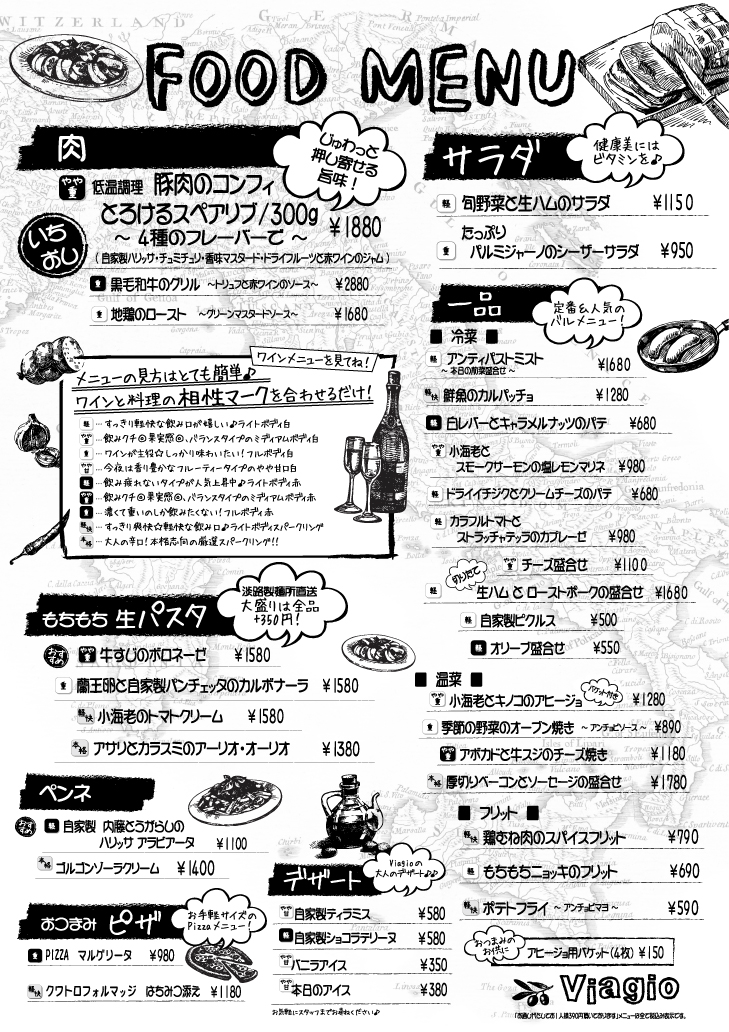 FOOD MENU
肉
じゅわっと
押し寄せる
旨味！
やや重 低温調理 豚肉のコンフィ
いち
おし
とろけるスペアリブ/300g ¥1880
～ 4種のフレーバーで ～
（自家製ハリッサ・チュミチュリ・香味マスタード・ドライフルーツと赤ワインのジャム）
重 黒毛和牛のグリル ～トリュフと赤ワインのソース～ ¥2880
重 地鶏のロースト ～グリーンマスタードソース～ ¥1680
ワインメニューを見てね！
メニューの見方はとても簡単♪
ワインと料理の相性マークを合わせるだけ！
軽 … すっきり軽快な飲み口が嬉しい♪ライトボディ白
やや重 … 飲みクチ◎果実感◎、バランスタイプのミディアムボディ白
重 … ワインが主役☆しっかり味わいたい！フルボディ白
やや甘 … 今夜は香り豊かなフルーティータイプのやや甘口白
軽 … 飲み疲れないタイプが人気上昇中♪ライトボディ赤
やや重 … 飲みクチ◎果実感◎、バランスタイプのミディアムボディ赤
重 … 濃くて重いのしか飲みたくない！フルボディ赤
軽快 … すっきり爽快☆軽快な飲み口♪ライトボディスパークリング
本格 … 大人の辛口！本格志向の厳選スパークリング！！
もちもち 生パスタ
淡路製麺所直送
大盛りは全品
+350円！
おすすめ やや重 牛すじのボロネーゼ ¥1580
重 蘭王卵と自家製パンチェッタのカルボナーラ ¥1580
軽快 小海老のトマトクリーム ¥1580
本格 アサリとカラスミのアーリオ・オーリオ ¥1380
ペンネ
おすすめ 軽 自家製 内藤とうがらしの
ハリッサ アラビアータ ¥1100
本格 ゴルゴンゾーラクリーム ¥1400
おつまみ ピザ
お手軽サイズの
Pizzaメニュー！
重 PIZZA マルゲリータ ¥980
軽快 クワトロフォルマッジ はちみつ添え ¥1180
デザート
Viagioの
大人のデザート♪♪
やや甘 自家製ティラミス ¥580
軽 自家製ショコラテリーヌ ¥580
やや甘 バニラアイス ¥350
やや甘 本日のアイス ¥380
お気軽にスタッフまでお尋ねください♪
サラダ
健康美には
ビタミンを♪
軽 旬野菜と生ハムのサラダ ¥1150
たっぷり
重 パルミジャーノのシーザーサラダ ¥950
一品
定番&人気の
バルメニュー！
■ 冷菜 ■
軽 アンティパストミスト ¥1680
～ 本日の前菜盛合せ ～
軽快 鮮魚のカルパッチョ ¥1280
軽 白レバーとキャラメルナッツのパテ ¥680
やや重 小海老と
スモークサーモンの塩レモンマリネ ¥980
軽 ドライイチジクとクリームチーズのパテ ¥680
軽快 カラフルトマトと
ストラッチャテッラのカプレーゼ ¥980
やや重 チーズ盛合せ ¥1100
切りたて
軽 生ハム と ローストポークの盛合せ ¥1680
軽 自家製ピクルス ¥500
軽 オリーブ盛合せ ¥550
■ 温菜 ■
バケット付き
やや重 小海老とキノコのアヒージョ ¥1280
重 季節の野菜のオーブン焼き ～ アンチョビソース ～ ¥890
やや重 アボカドと牛スジのチーズ焼き ¥1180
本格 厚切りベーコンとソーセージの盛合せ ¥1780
■ フリット ■
軽快 鶏むね肉のスパイスフリット ¥790
軽 もちもちニョッキのフリット ¥690
軽快 ポテトフライ ～ アンチョビマヨ ～ ¥590
おつまみの
お供に
アヒージョ用バケット(4枚) ¥150
Viagio